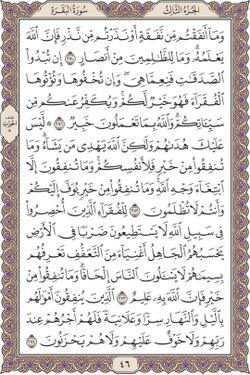 الجزء الثالث
سورة البقرة
وَمَا أَنفَقْتُم مِّن نَّفَقَةٍ أَوْ نَذَرْتُم مِّن نَّذْرٍ فَإِنَّ ٱللَّهَ
يَعْلَمُهُۥ وَمَا لِلظَّٰلِمِينَ مِنْ أَنصَارٍ ٢٧٠ إِن تُبْدُوا۟
ٱلصَّدَقَٰتِ فَنِعِمَّا هِىَ وَإِن تُخْفُوهَا وَتُؤْتُوهَا
ٱلْفُقَرَآءَ فَهُوَ خَيْرٌ لَّكُمْ وَيُكَفِّرُ عَنكُم مِّن
سَيِّـَٔاتِكُمْ وَٱللَّهُ بِمَا تَعْمَلُونَ خَبِيرٌ ٢٧١ لَّيْسَ
عَلَيْكَ هُدَىٰهُمْ وَلَٰكِنَّ ٱللَّهَ يَهْدِى مَن يَشَآءُ وَمَا
تُنفِقُوا۟ مِنْ خَيْرٍ فَلِأَنفُسِكُمْ وَمَا تُنفِقُونَ إِلَّا
ٱبْتِغَآءَ وَجْهِ ٱللَّهِ وَمَا تُنفِقُوا۟ مِنْ خَيْرٍ يُوَفَّ إِلَيْكُمْ
وَأَنتُمْ لَا تُظْلَمُونَ ٢٧٢ لِلْفُقَرَآءِ ٱلَّذِينَ أُحْصِرُوا۟
فِى سَبِيلِ ٱللَّهِ لَا يَسْتَطِيعُونَ ضَرْبًا فِى ٱلْأَرْضِ
يَحْسَبُهُمُ ٱلْجَاهِلُ أَغْنِيَآءَ مِنَ ٱلتَّعَفُّفِ تَعْرِفُهُم
بِسِيمَٰهُمْ لَا يَسْـَٔلُونَ ٱلنَّاسَ إِلْحَافًا وَمَا تُنفِقُوا۟ مِنْ
خَيْرٍ فَإِنَّ ٱللَّهَ بِهِۦ عَلِيمٌ ٢٧٣ ٱلَّذِينَ يُنفِقُونَ أَمْوَٰلَهُم
بِٱلَّيْلِ وَٱلنَّهَارِ سِرًّا وَعَلَانِيَةً فَلَهُمْ أَجْرُهُمْ عِندَ
رَبِّهِمْ وَلَا خَوْفٌ عَلَيْهِمْ وَلَا هُمْ يَحْزَنُونَ ٢٧٤
٤٦